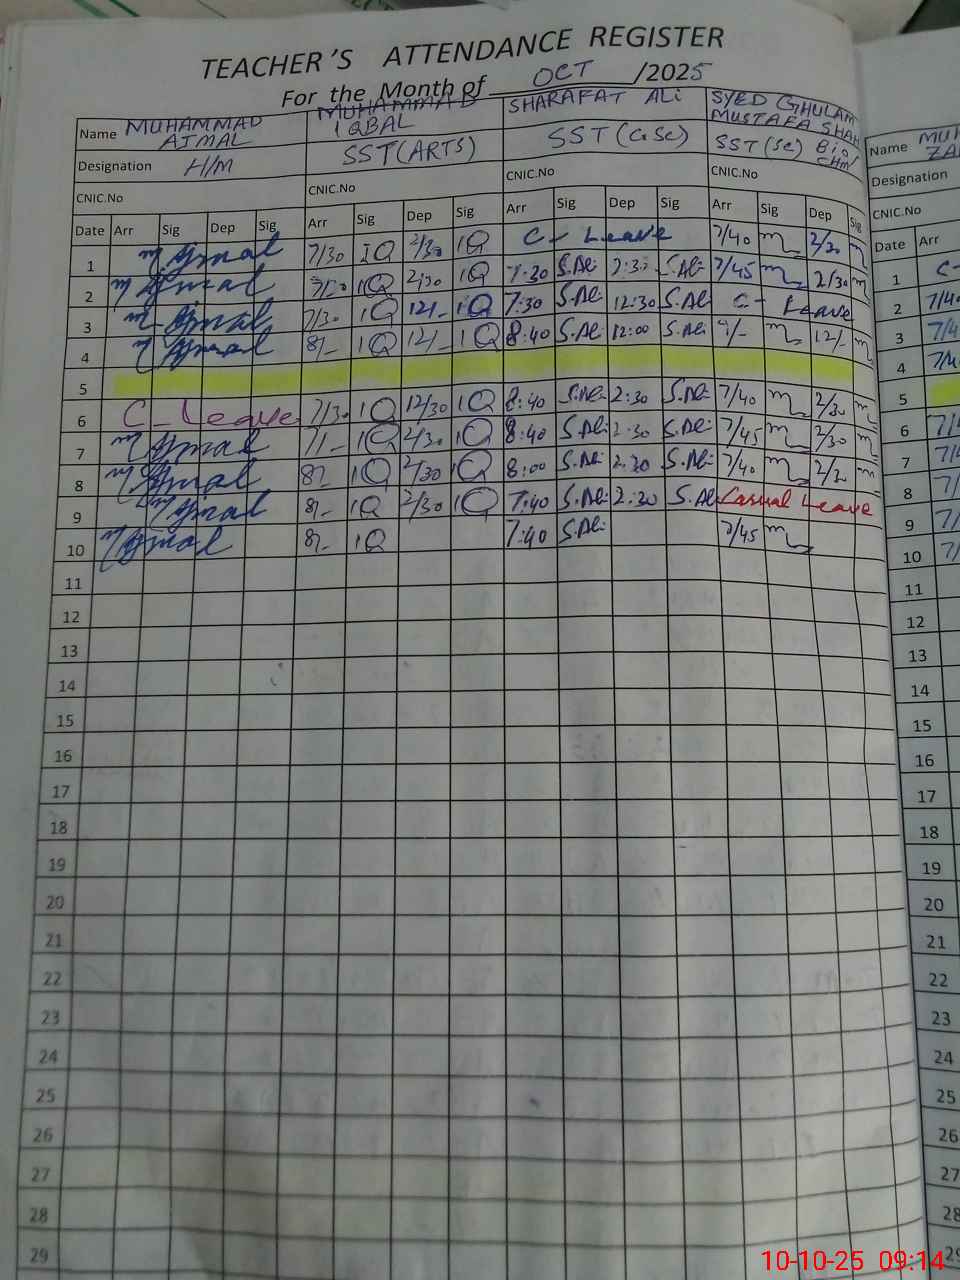 TEACHER'S ATTENDANCE REGISTER
For the Month of OCT /2025
Name MUHAMMAD AJMAL MUHAMMAD IQBAL SHARAFAT ALi SYED GHULAM MUSTAFA SHAH
Designation H/M SST(ARTS) SST(G.Sc) SST(Sc) Bio/Chm
CNIC.No CNIC.No CNIC.No CNIC.No
Date Arr Sig Dep Sig Arr Sig Dep Sig Arr Sig Dep Sig Arr Sig Dep Sig
1 M Ajmal 7/30 IQ 2/30 IQ C- Leave 7/40 m 2/30 m
2 M Ajmal 7/30 IQ 2/30 IQ 7:30 S.Ali 2:30 S.Ali 7/45 m 2/30 m
3 M Ajmal 7/30 IQ 12/- IQ 7:30 S.Ali 12:30 S.Ali C- Leave
4 M Ajmal 8/- IQ 12/- IQ 8:40 S.Ali 12:00 S.Ali 9/- m 12/- m
5
6 C- Leave 7/30 IQ 12/30 IQ 8:40 S.Ali 2:30 S.Ali 7/40 m 2/30 m
7 M Ajmal 7/- IQ 2/30 IQ 8:40 S.Ali 2:30 S.Ali 7/45 m 2/30 m
8 M Ajmal 8/- IQ 2/30 IQ 8:00 S.Ali 2:30 S.Ali 7/40 m 2/30 m
9 M Ajmal 8/- IQ 2/30 IQ 7:40 S.Ali 2:30 S.Ali Casual Leave
10 M Ajmal 8/- IQ 7:40 S.Ali 7/45 m
11
12
13
14
15
16
17
18
19
20
21
22
23
24
25
26
27
28
29
Name
Designation
CNIC.No
Date Arr
1 C-
2 7/40
3
4
5
6
7
8
9
10
11
12
13
14
15
16
17
18
19
20
21
22
23
24
25
26
27
28
10-10-25 09:14